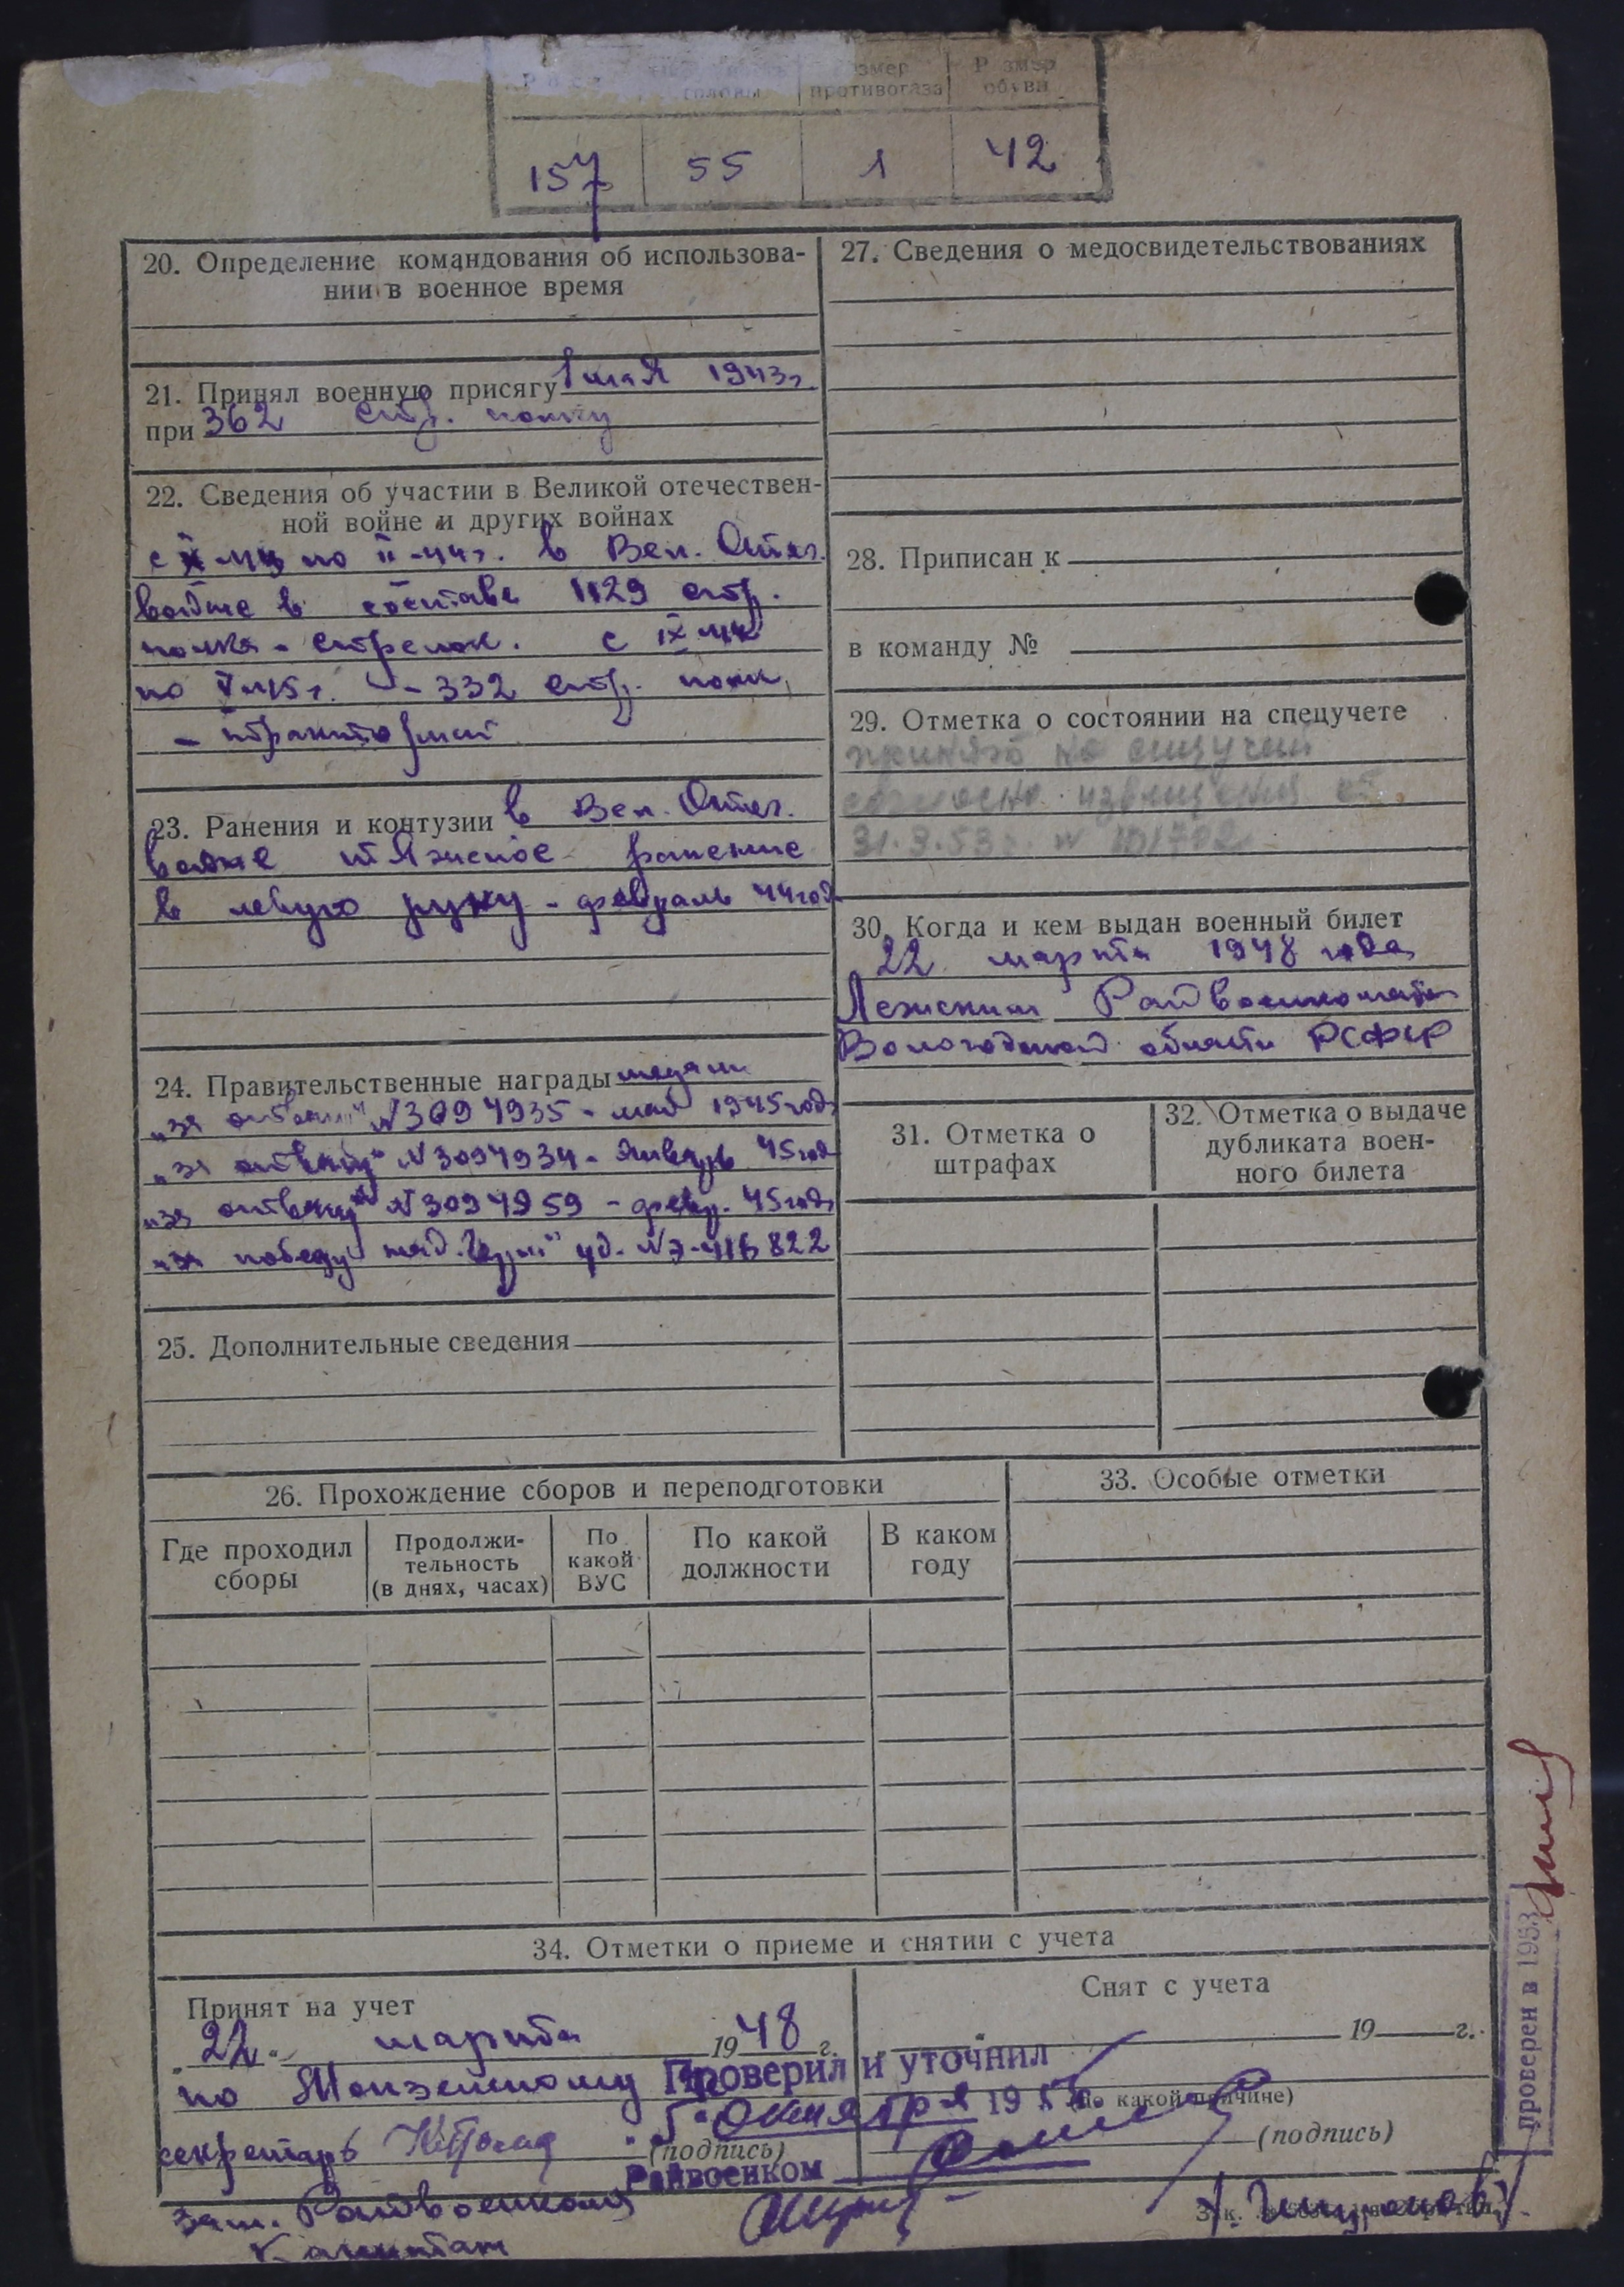 Размер противогаза
Размер обуви
157 55 1 42
20. Определение командования об использова-
нии в военное время
21. Принял военную присягу 1 мая 1943г.
при 362 стр. полку
22. Сведения об участии в Великой отечествен-
ной войне и других войнах
по II-44г. в Вел. Отеч.
войне в составе 1129 стр.
полка - стрелок. с IX-44
по V-45г. -"- 332 стр. полк
23. Ранения и контузии в Вел. Отеч.
войне тяжелое ранение
в левую руку - февраль 44 год
24. Правительственные награды медали
„за отвагу" №3094935 - май 1945 года
„за отвагу" №3094934 - январь 45 год
„за отвагу" №3094959 - февр. 45 года
„за победу над Герм." уд. №
25. Дополнительные сведения
26. Прохождение сборов и переподготовки
Где проходил
сборы
Продолжи-
тельность
(в днях, часах)
По
какой
ВУС
По какой
должности
В каком
году
27. Сведения о медосвидетельствованиях
28. Приписан к
в команду №
29. Отметка о состоянии на спецучете
принят на спецучет
согласно извещения от
31.3.53г. №
30. Когда и кем выдан военный билет
22 марта 1948 года
Лежским Райвоенкоматом
Вологодской области РСФСР
31. Отметка о
штрафах
32. Отметка о выдаче
дубликата воен-
ного билета
33. Особые отметки
34. Отметки о приеме и снятии с учета
Принят на учет
„22" марта 1948 г.
по Монзенскому
секретарь
(подпись)
Зам. Райвоенкома
Капитан
Снят с учета
19 г.
(по какой причине)
(подпись)
Проверил и уточнил
„5" октября 195
Райвоенком
Зак.
проверен в 1953